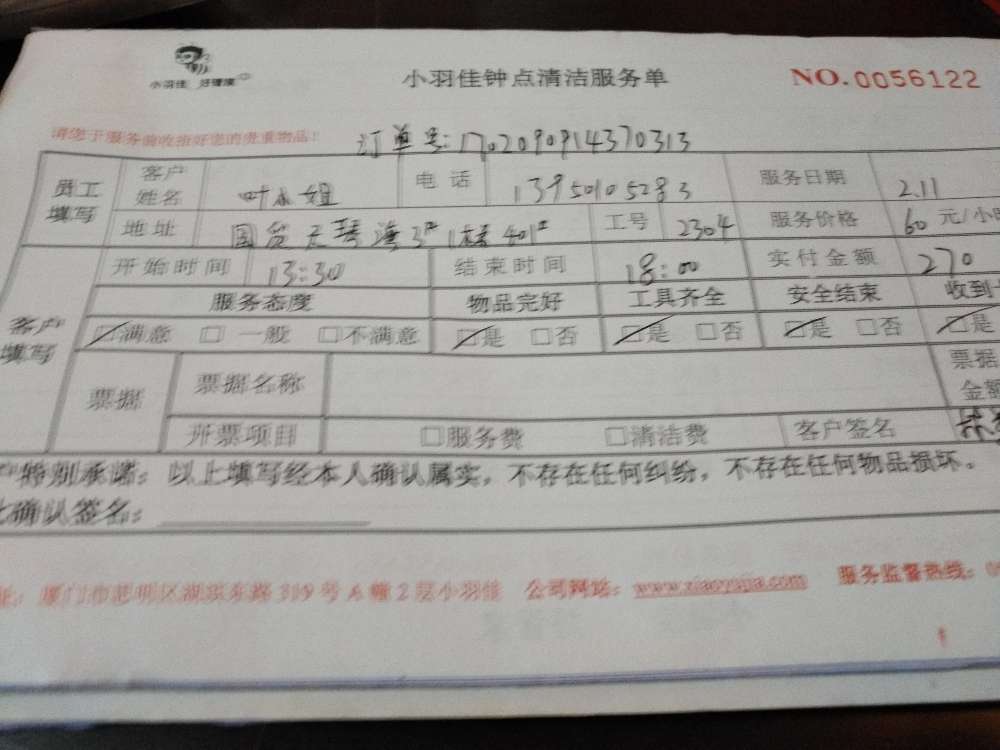 小羽佳 好管家
小羽佳钟点清洁服务单
NO.0056122
请您于服务前收拾好您的贵重物品!
订单号:1702090914370313
员工填写 客户姓名 叶小姐 电话 13950105283 服务日期 2.11
地址 国贸天琴湾 1栋401 工号 2304 服务价格 60 元/小
客户填写 开始时间 13:30 结束时间 18:00 实付金额 270
服务态度 物品完好 工具齐全 安全结束 收到
☑满意 □一般 □不满意 ☑是 □否 ☑是 □否 ☑是 □否 ☑是
票据 票据名称 票据金额
开票项目 □服务费 □清洁费 客户签名
特别承诺：以上填写经本人确认属实，不存在任何纠纷，不存在任何物品损坏。
确认签名：
厦门市思明区湖滨东路319号A幢2层小羽佳 公司网站：www.xiaoyujia.com 服务监督热线：